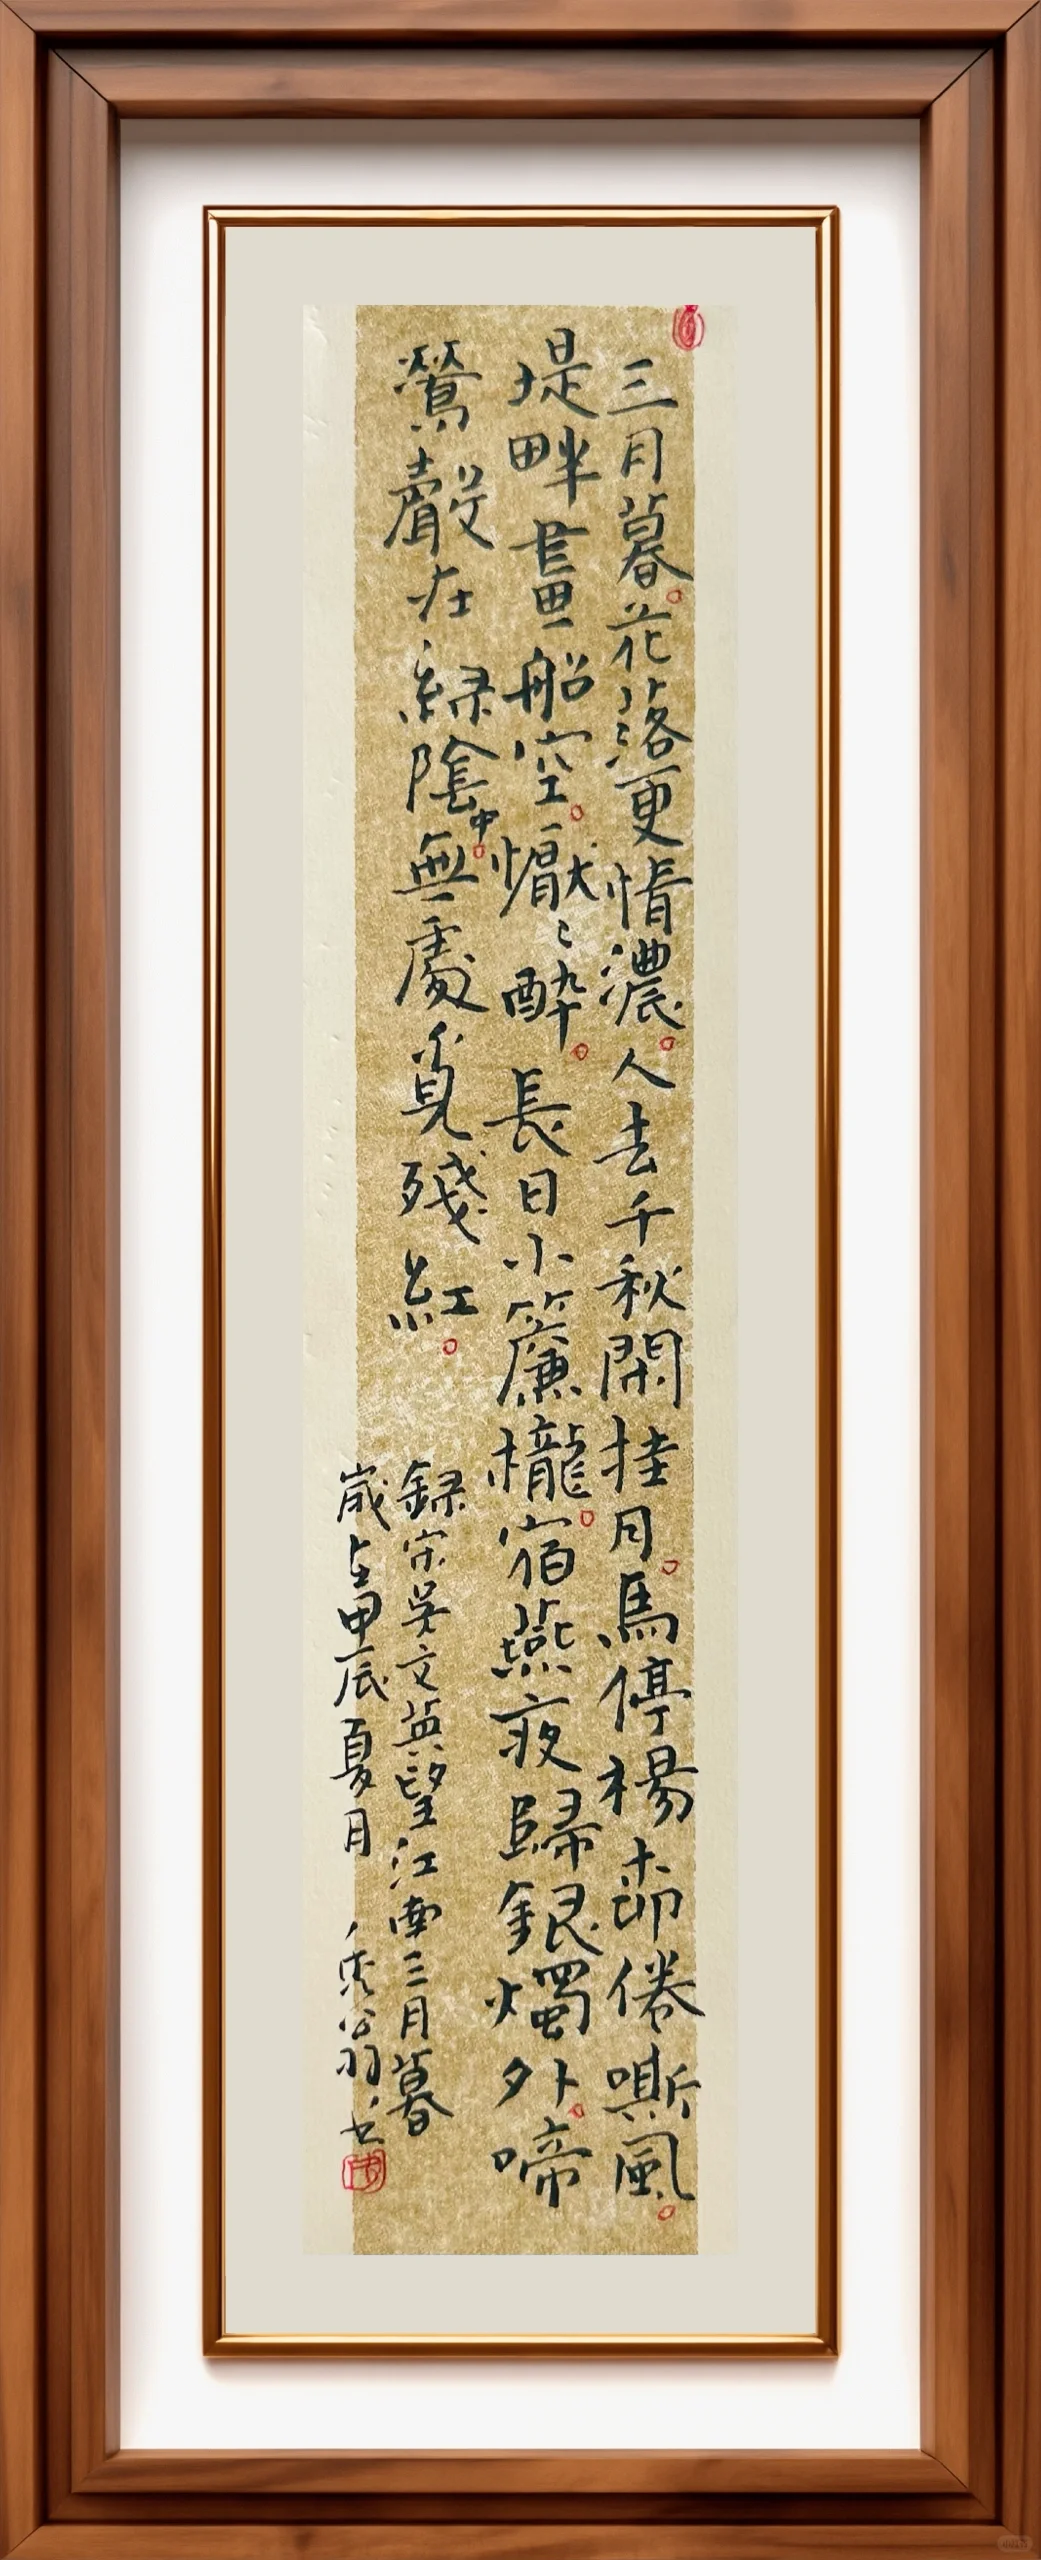 三月暮。花落更情濃。人去千秋閑挂月。馬停楊柳倦嘶風。
堤畔畫船空。懨々醉。長日小簾櫳。宿燕夜歸銀燭外。啼
鶯聲在綠陰中。無處覓殘紅。
錄宋吳文英望江南三月暮
歲在甲辰夏月 翁书